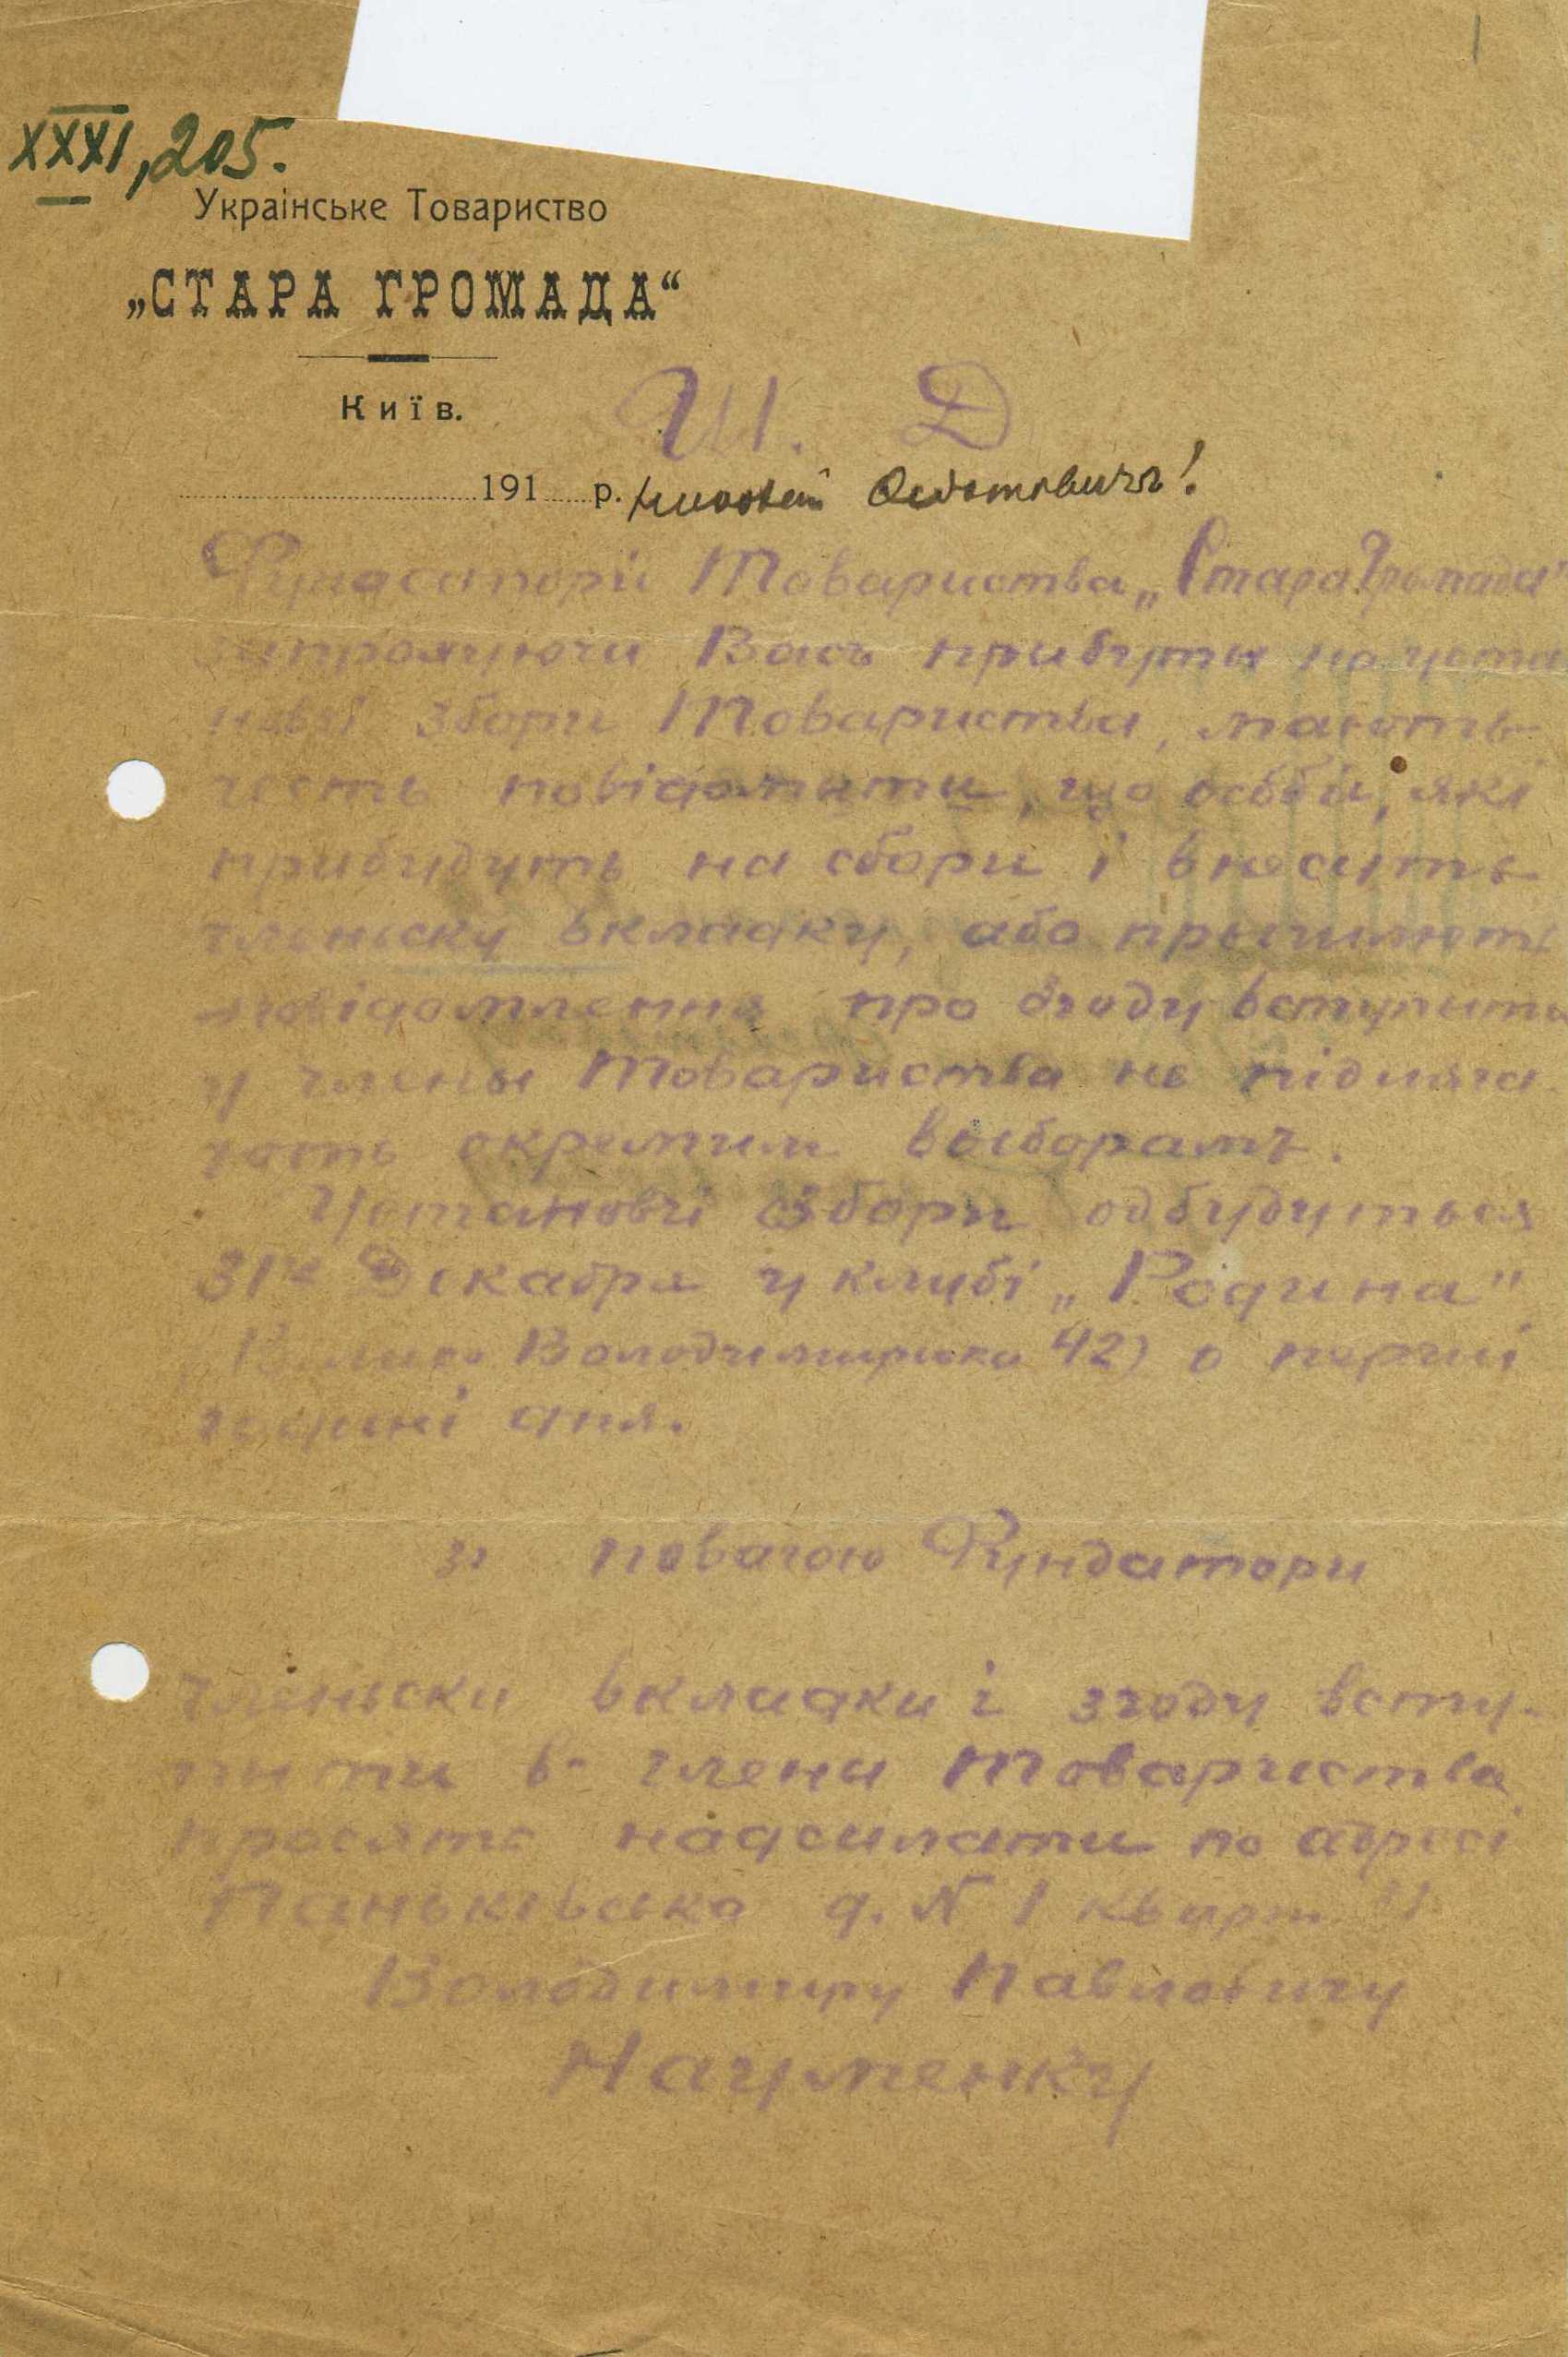 XXXI, 205.
Украінське Товариство
„СТАРА ГРОМАДА“
Київ.
Ш. Д
191 р. Федотовичъ!
Фундаторы Товариства „Стара Громада"
запрохуючи Васъ прибути на уста
новчі збори Товариства, мають
честь повідомити, що особи, які
прибудуть на сбори і вносить
членьску вкладку, або присилють
повідомлення про згоду вступити
у члены Товариства не підляга
ють окремим выборамъ.
Установчі збори одбудуться
31го Декабря у клубі „Родина"
Велико Володимирска 42) о першій
годині дня.
з повагою Фундатори
Членьски вкладки і згоду всту-
пити в члены Товариства
просять надсилати по адресі
Паньківська д. N 1 кварт
Володимиру Павловичу
Науменку